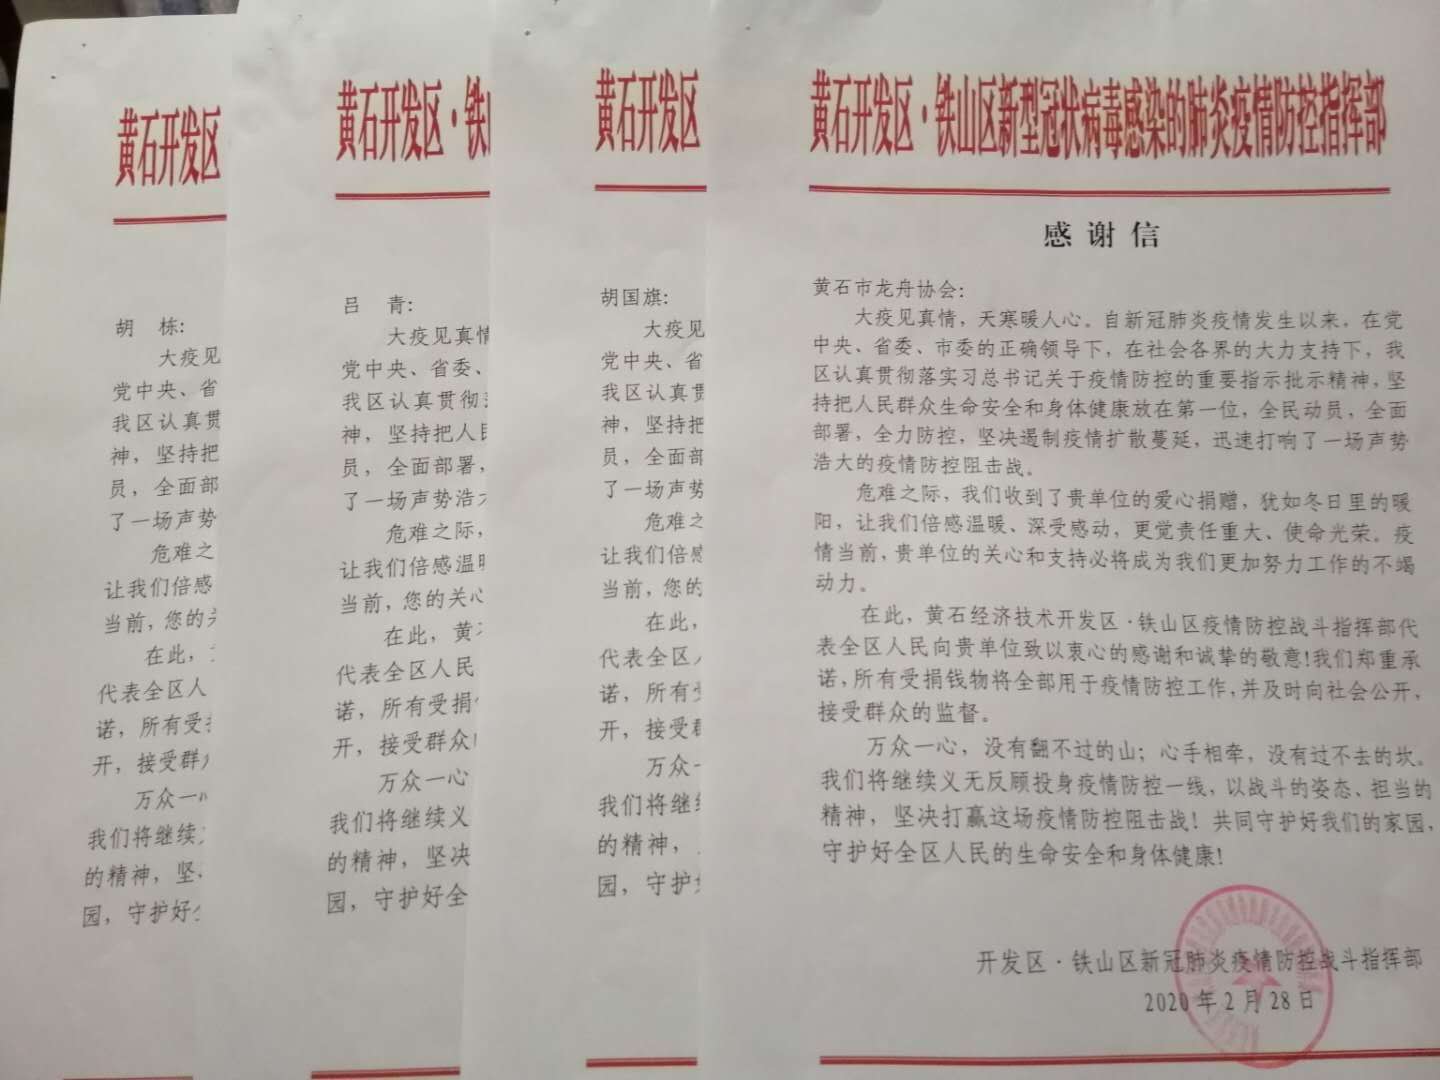 黄石开发区
胡 栋:
大疫见
党中央、省
我区认真贯
神，坚持把
员，全面部
了一场声势
危难之
让我们倍感
当前，您的关
在此，
代表全区人
诺，所有受
开，接受群
万众一心
我们将继续
的精神，坚
园，守护好
黄石开发区·铁
吕 青:
大疫见真情
党中央、省委、
我区认真贯彻
神，坚持把人民
员，全面部署，
了一场声势浩大
危难之际，
让我们倍感温暖
当前，您的关心
在此，黄石
代表全区人民
诺，所有受捐
开，接受群众
万众一心
我们将继续义
的精神，坚决
园，守护好全
黄石开发区
胡国旗:
大疫见
党中央、省
我区认真贯
神，坚持把
员，全面部
了一场声势
危难之
让我们倍感
当前，您的
在此，
代表全区人
诺，所有受
开，接受群
万众一
我们将继续
的精神，
园，守护好
黄石开发区·铁山区新型冠状病毒感染的肺炎疫情防控指挥部
感谢信
黄石市龙舟协会:
大疫见真情，天寒暖人心。自新冠肺炎疫情发生以来，在党
中央、省委、市委的正确领导下，在社会各界的大力支持下，我
区认真贯彻落实习总书记关于疫情防控的重要指示批示精神，坚
持把人民群众生命安全和身体健康放在第一位，全民动员，全面
部署，全力防控，坚决遏制疫情扩散蔓延，迅速打响了一场声势
浩大的疫情防控阻击战。
危难之际，我们收到了贵单位的爱心捐赠，犹如冬日里的暖
阳，让我们倍感温暖、深受感动，更觉责任重大、使命光荣。疫
情当前，贵单位的关心和支持必将成为我们更加努力工作的不竭
动力。
在此，黄石经济技术开发区·铁山区疫情防控战斗指挥部代
表全区人民向贵单位致以衷心的感谢和诚挚的敬意!我们郑重承
诺，所有受捐钱物将全部用于疫情防控工作，并及时向社会公开，
接受群众的监督。
万众一心，没有翻不过的山；心手相牵，没有过不去的坎。
我们将继续义无反顾投身疫情防控一线，以战斗的姿态、担当的
精神，坚决打赢这场疫情防控阻击战！共同守护好我们的家园，
守护好全区人民的生命安全和身体健康!
开发区·铁山区新冠肺炎疫情防控战斗指挥部
2020年2月28日